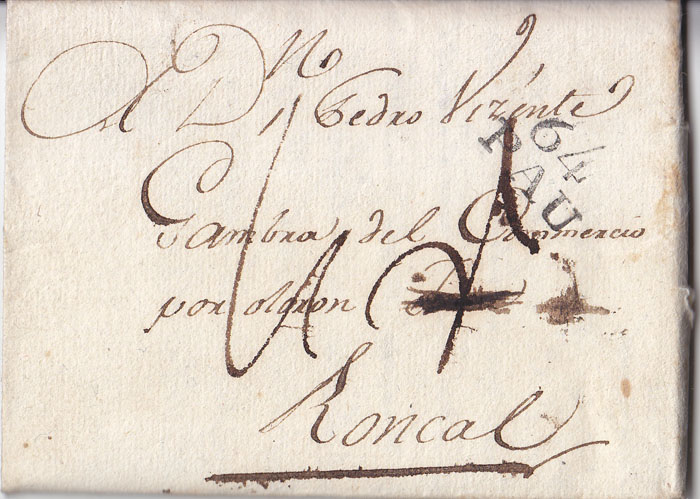 A Dn Pedro Vizente
64
PAU
Gambra del Commercio
por oloron
Roncal